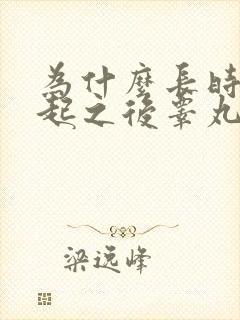 為什麼長時
起之後睪丸
梁远峰